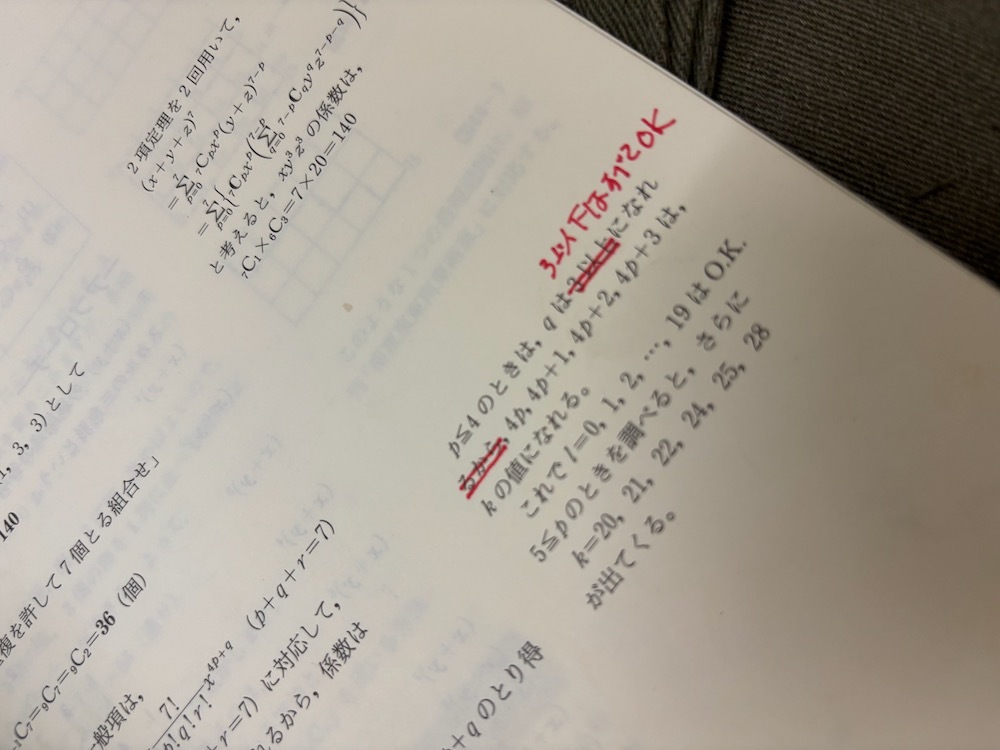 2項定理を2回用いて，
(x+y+z)⁷
=∑_{p=0}^{7} ₇Cₚxᵖ(y+z)⁷⁻ᵖ
=∑_{p=0}^{7}{₇Cₚxᵖ(∑_{q=0}^{7-p} ₇₋ₚC_q y^q z^{7-p-q})}
と考えると，xy³z³の係数は，
₇C₁×₆C₃=7×20=140
3, 3)として
140
複を許して7個とる組合せ」
C₇=₉C₇=₉C₂=36（個）
般項は，
7!/(p!q!r!) x^{4p+q} (p+q+r=7)
+r=7）に対応して，
るから，係数は
+qのとり得
3以下はすべてOK
p≦4のときは，qは3以上になれ
るから，4p, 4p+1, 4p+2, 4p+3は，
kの値になれる。
これでl=0，1，2，…，19はO.K.
5≦pのときを調べると，さらに
k=20，21，22，24，25，28
が出てくる。